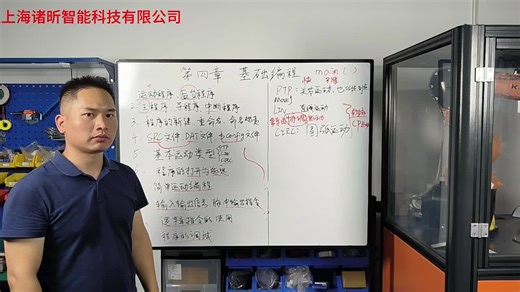 上海诸昕智能科技有限公司
第四章 基础编程 main()
运动程序 后台程序
2. 主程序 子程序 中断程序
3. 程序的新建 重命名
4. SRC文件 DAT文件 config文件
5. 基本运动类型 PTP LIN CIRC
程序的打开与
简单运动编程
输入输出信号 脉冲输出指令
逻辑指令的使用
程序的调试
PTP:
MoveJ
LIN 直线运动
CIRC: 圆弧运动
CP